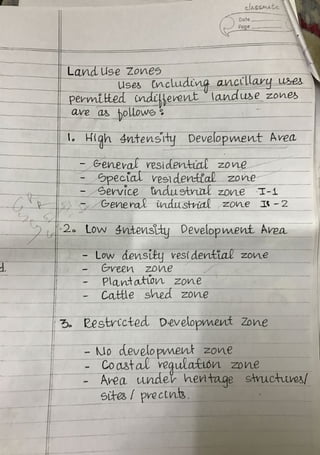 classmate
Date
Page
Land Use Zones
Uses including ancillary uses
permitted indifferent landuse zones
are as follows :
1. High Intensity Development Area
- General residential zone
- Special residential zone
- Service industrial zone I-1
- General industrial zone I-2
2. Low Intensity Development Area
- Low density residential zone
- Green zone
- Plantation zone
- Cattle shed zone
d.
3. Restricted Development Zone
- No development zone
- Coastal regulation zone
- Area under heritage structures/
sites / precints.